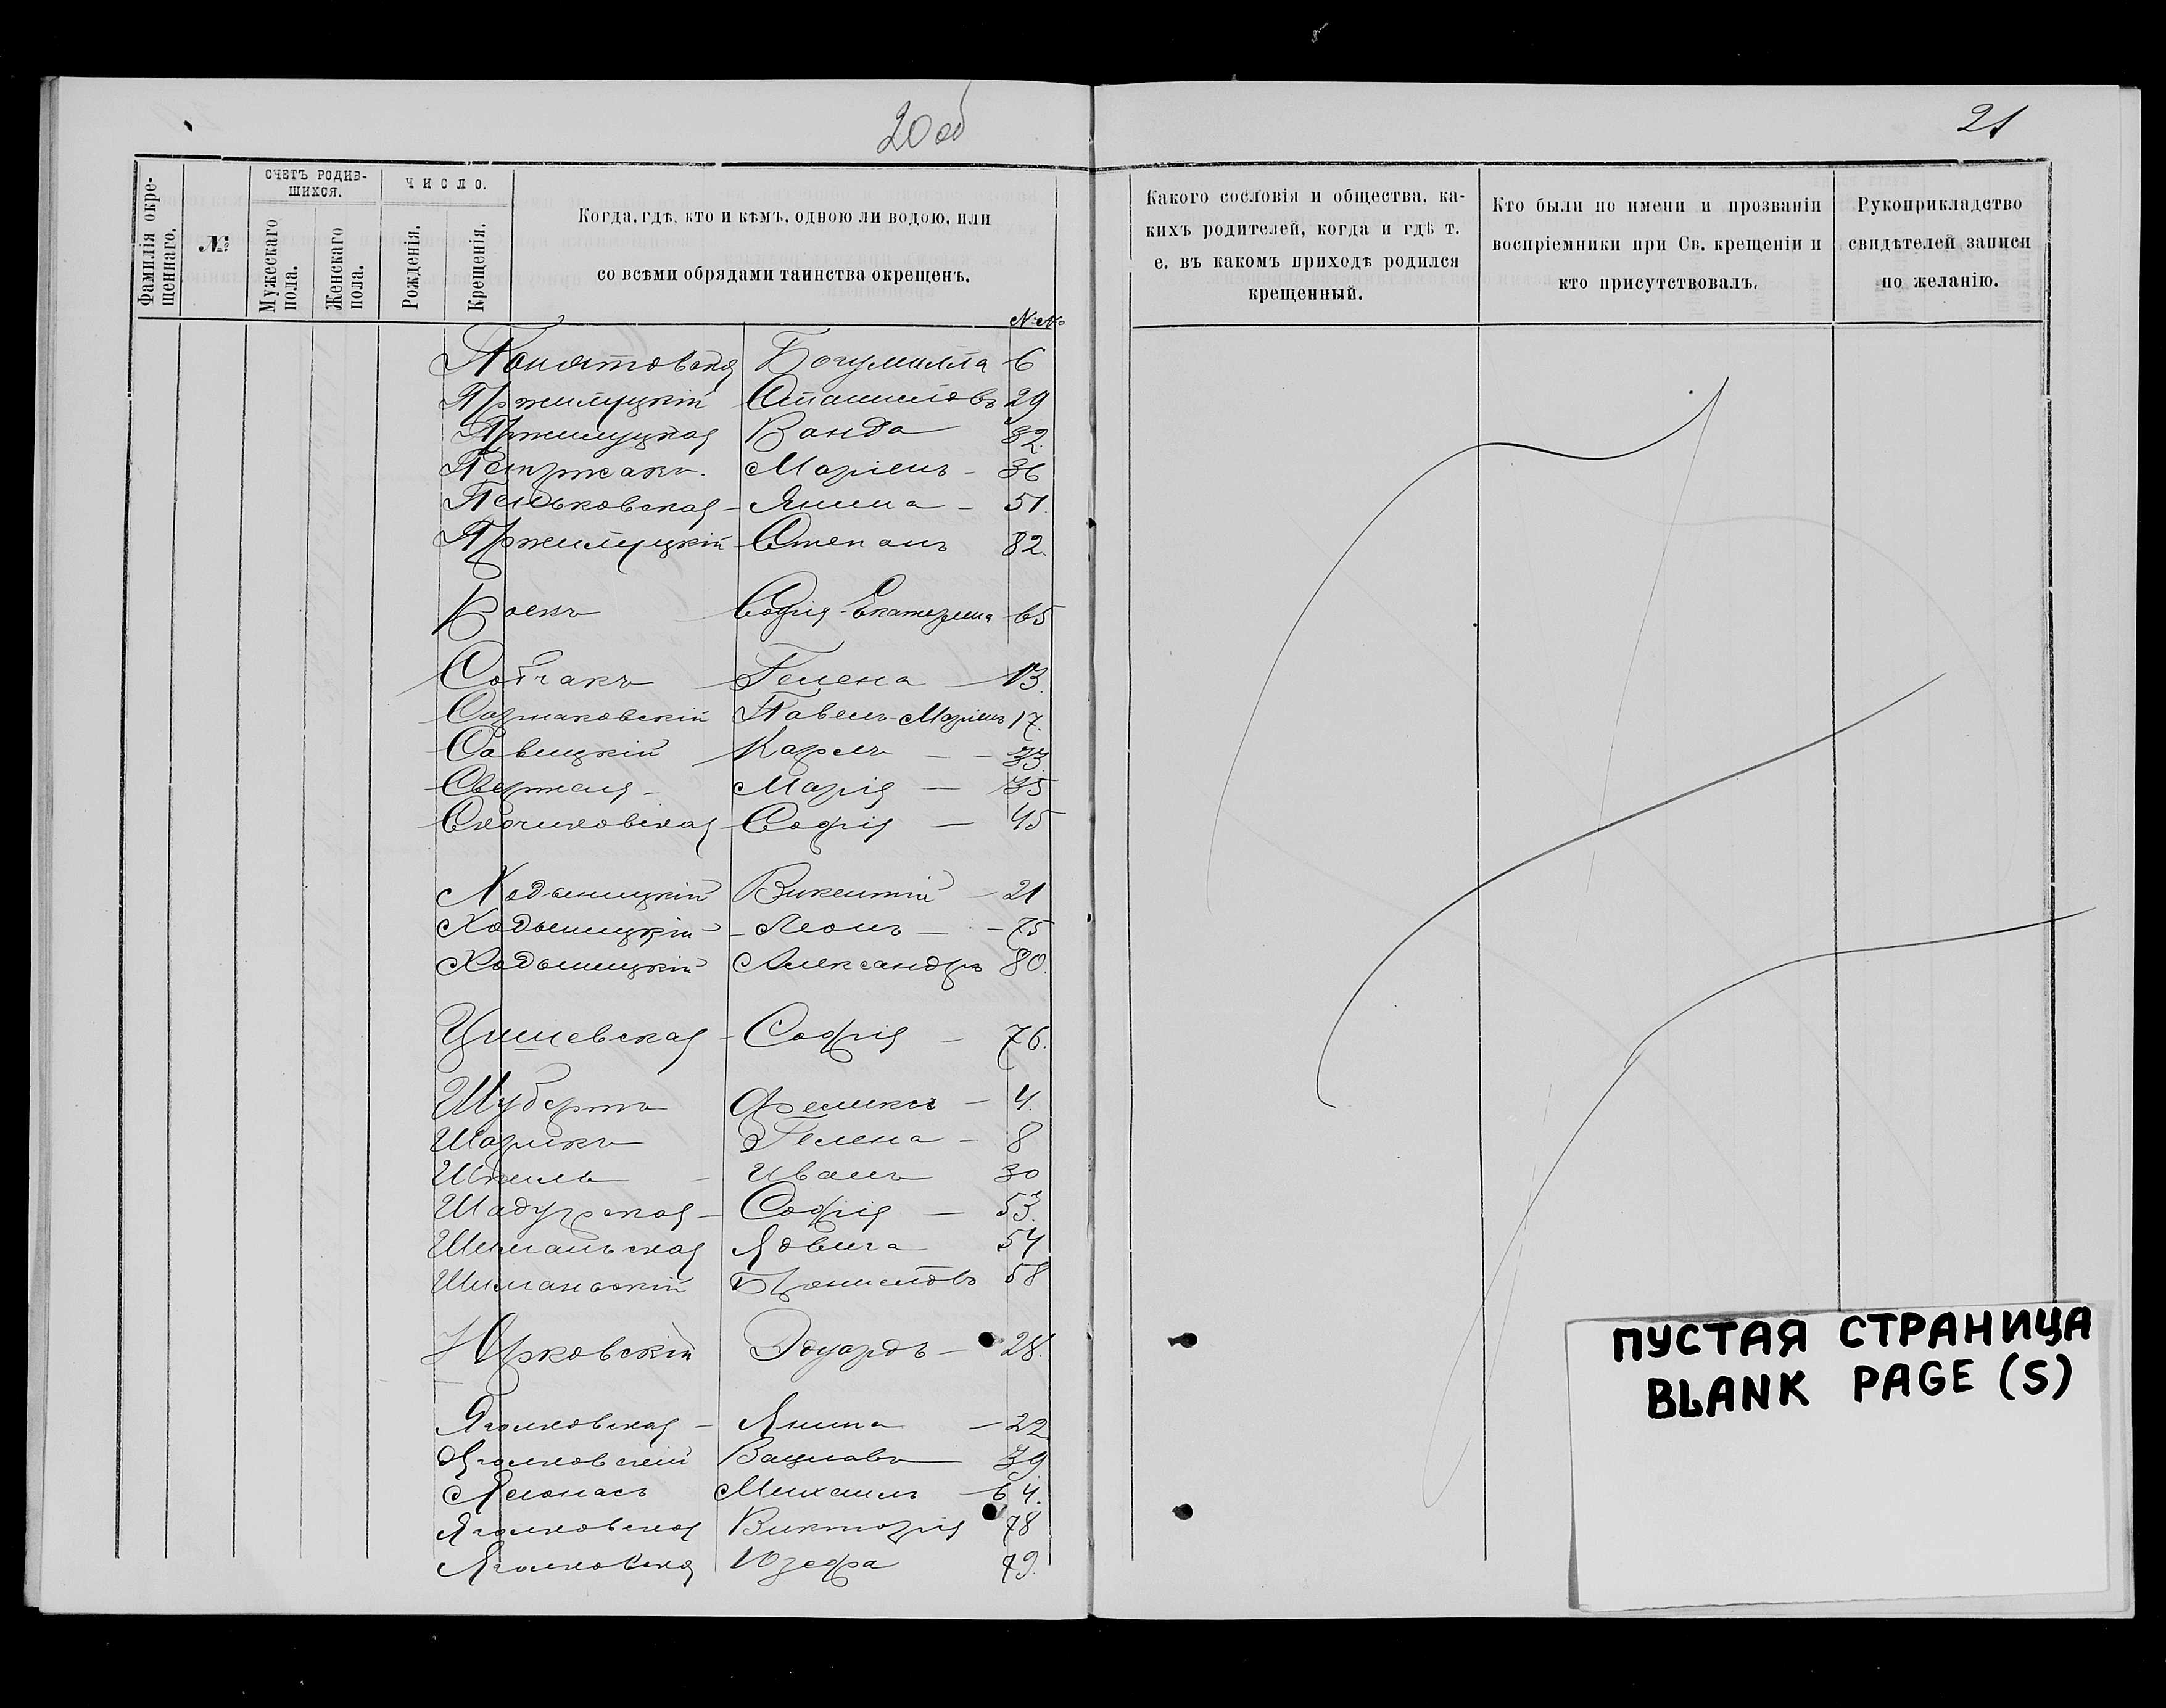 20 об
21
Фамилія окре-
щеннаго.
№
СЧЕТЪ РОДИВ-
ШИХСЯ.
Мужескаго
пола.
Женскаго
пола.
ЧИСЛО.
Рожденія.
Крещенія.
Когда, гдѣ, кто и кѣмъ, одною ли водою, или
со всѣми обрядами таинства окрещенъ.
№№
Какого сословія и общества, ка-
кихъ родителей, когда и гдѣ т.
е. въ какомъ приходѣ родился
крещенный.
Кто были по имени и прозванію
воспріемники при Св. крещеніи и
кто присутствовалъ.
Рукоприкладство
свидѣтелей записи
по желанію.
Понятовская Богумилла 6
Пржилуцкій Станиславъ 29
Пржилуцкая Ванда 32.
Петржакъ. Маріанъ - 36
Янина - 51.
Пржилуцкій Степанъ 82.
Софія-Екатерина 65
Собчакъ Гелена 13.
Павелъ-Маріанъ 17.
Савицкій Карлъ - 33
Марія - 35
Софія - 45
Ходыницкій Викентій - 21
Ходыницкій - Леонъ - 75
Ходыницкій Александръ 80.
Цишевская - Софія - 76.
Шубертъ Феликсъ - 4.
Шарикъ Гелена - 8
Иванъ 30
Шадурская - Софія - 53.
Шиманьская Ядвига 54
Шиманскій Брониславъ 58
Юрковскій Эдуардъ - 28.
Яголковская - Янина - 22
Яголковскій Вацлавъ 39
Михаилъ 64.
Яголковская Викторія 78
Яголковская Юзефа 79.
ПУСТАЯ СТРАНИЦА
BLANK PAGE (S)